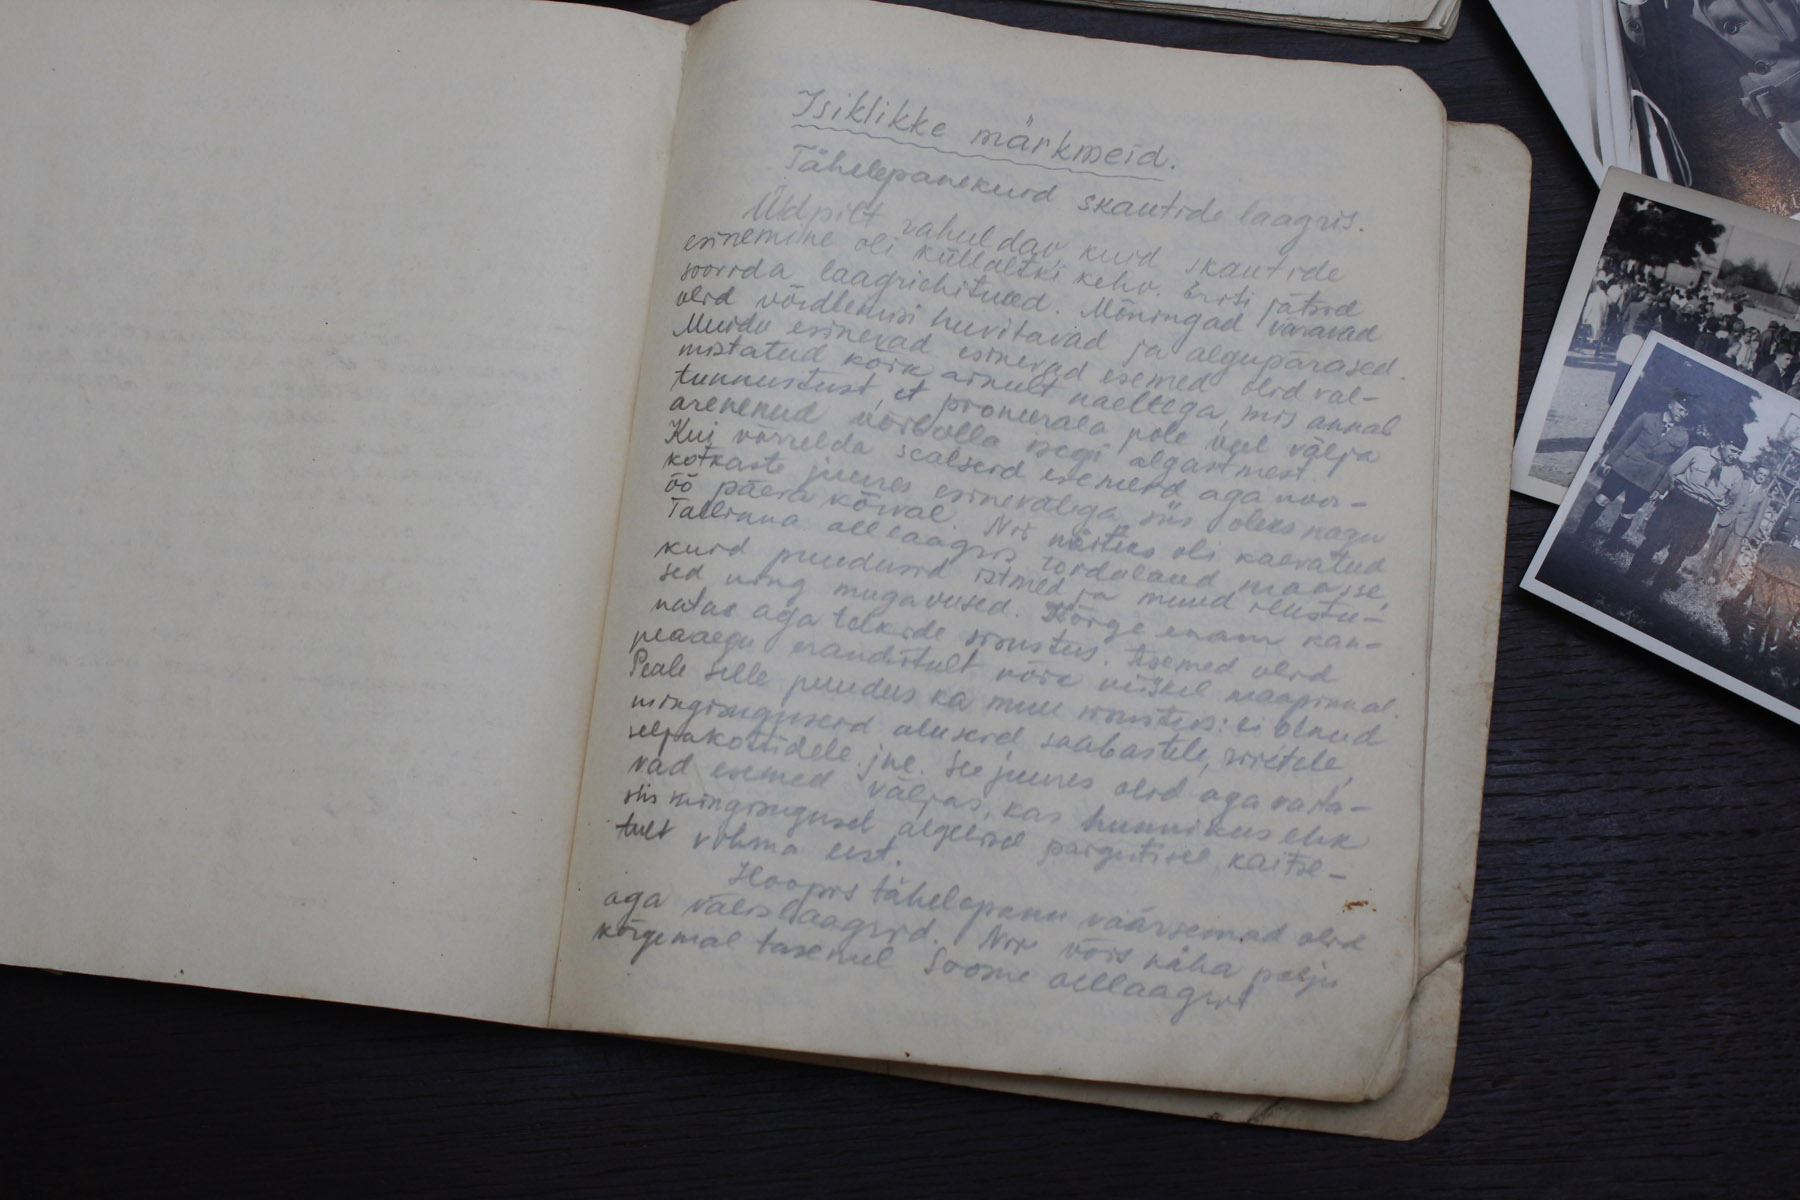 Isiklikke märkmeid.
Tähelepanekuid skautide laagris.
Üldpilt rahuldav, kuid skautide
esinemine oli küllaltki kehv. Eriti jätsid
soovida laagriehitused. Mõningad väravad
olid võrdlemisi huvitavad ja algupärased.
Muidu esinevad esinevad esemed olid val-
mistatud kõik ainult naeltega, mis annab
tunnustust, et pioneeriala pole veel välja
arenenud võibolla isegi algastmest.
Kui võrrelda sealseid esemeid aga noor-
kotkaste juures esinevatega, siis oleks nagu
öö päeva kõrval. Nii näiteks oli kaevatud
Tallinna allaagris toidulaud maasse,
kuid puudusid istmed ja muud ilustu-
sed ning mugavused. Kõige enam kan-
natas aga telkide sisustus. Asemed olid
peaaegu eranditult kõik viiskil maapinnal.
Peale selle puudus ka muu sisustus: ei olnud
mingisuguseid aluseid saabastele, riietele,
seljakottidele jne. See juures olid aga vasta-
vad esemed väljas, kas hunnikus ehk
siis mingisugusel algelisel paigutisel, kaitse-
tult vihma eest.
Hoopis tähelepanu väärsemad olid
aga välislaagrid. Nii võis näha palju
kõrgemal tasemel Soome allaagrit